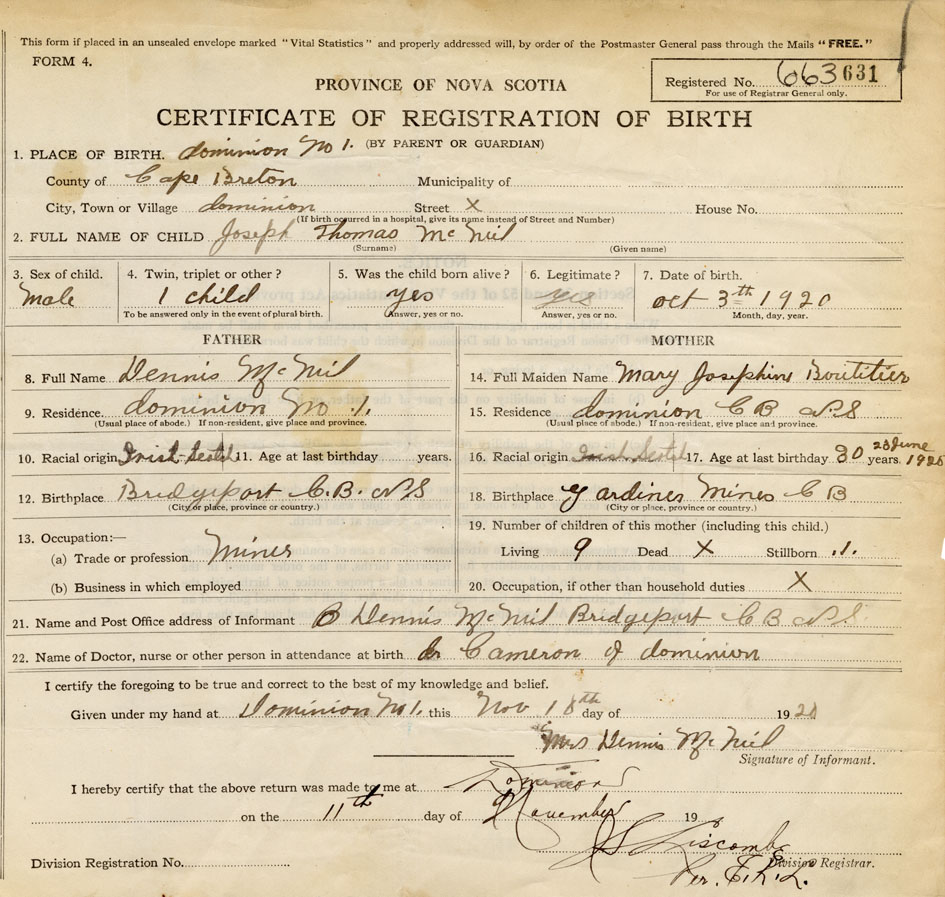 This form if placed in an unsealed envelope marked "Vital Statistics" and properly addressed will, by order of the Postmaster General pass through the Mails "FREE."
FORM 4.
Registered No. 663 631
For use of Registrar General only.
PROVINCE OF NOVA SCOTIA
CERTIFICATE OF REGISTRATION OF BIRTH
1. PLACE OF BIRTH. Dominion No 1. (BY PARENT OR GUARDIAN)
County of Cape Breton Municipality of
City, Town or Village dominion Street X House No.
(If birth occurred in a hospital, give its name instead of Street and Number)
2. FULL NAME OF CHILD Joseph Thomas McNeil
(Surname) (Given name)
3. Sex of child. 4. Twin, triplet or other? 5. Was the child born alive? 6. Legitimate? 7. Date of birth.
Male 1 child yes yes oct 3th 1920
To be answered only in the event of plural birth. Answer, yes or no. Answer, yes or no. Month, day, year.
FATHER MOTHER
8. Full Name Dennis McNeil 14. Full Maiden Name Mary Josephine Boutitier
9. Residence. dominion No 1. 15. Residence dominion C B N S
(Usual place of abode.) If non-resident, give place and province. (Usual place of abode.) If non-resident, give place and province.
10. Racial origin Irish Scotch 11. Age at last birthday years. 16. Racial origin Irish Scotch 17. Age at last birthday 30 years. 23 June
12. Birthplace Bridgeport C.B. N S 18. Birthplace Gardines Mines C B
(City or place, province or country.) (City or place, province or country.)
13. Occupation:— 19. Number of children of this mother (including this child.)
(a) Trade or profession Miner Living 9 Dead X Stillborn 1.
(b) Business in which employed 20. Occupation, if other than household duties X
21. Name and Post Office address of Informant Dennis McNeil Bridgeport C B N S
22. Name of Doctor, nurse or other person in attendance at birth Dr Cameron of dominion
I certify the foregoing to be true and correct to the best of my knowledge and belief.
Given under my hand at Dominion No 1. this Nov 10th day of 1920
Mrs Dennis McNeil
Signature of Informant.
I hereby certify that the above return was made to me at Dominion
on the 11th day of November 19
Liscomb
Division Registration No. Division Registrar.
Per.